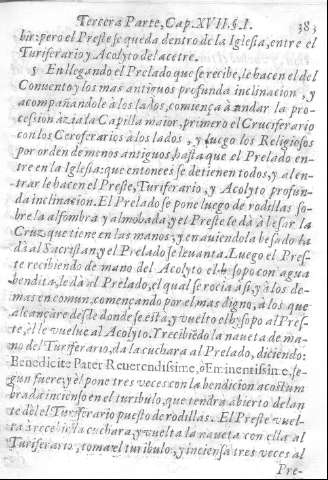 Tercera Parte, Cap. XVII. §. I. 383
bir: pero el Preste se queda dentro de la Iglesia, entre el
Turiferario y Acolyto del acetre.
5 En llegando el Prelado que se recibe, le hacen el del
Conuento y los mas antiguos profunda inclinacion, y
acompañandole à los lados, comiença à andar la pro-
cession àzia la Capilla maior, primero el Cruciferario
con los Ceroferarios à los lados, y luego los Religiosos
por orden de menos antiguos, hasta que el Prelado en-
tre en la Iglesia: que entonces se detienen todos, y al en-
trar le hacen el Preste, Turiferario, y Acolyto profun-
da inclinacion. El Prelado se pone luego de rodillas so-
bre la alfombra y almohada; y el Preste le dà à besar la
Cruz que tiene en las manos; y en auiendola besado la
dà al Sacristan, y el Prelado se leuanta. Luego el Pres-
te recibiendo de mano del Acolyto el hysopo con agua
bendita, le dà al Prelado, el qual se rocia à sì, y à los de-
mas en comun, començando por el mas digno, à los que
alcançare desde donde se està, y vuelto el hysopo al Pres-
te, èl le vuelue al Acolyto. Y recibiẽdo la naueta de ma-
no del Turiferario, da la cuchara al Prelado, diciendo:
Benedicite Pater Reuerendissime, ò Eminentissime, se-
gun fuere; y èl pone tres veces con la bendicion acostum
brada incienso en el turibulo, que tendrà abierto delan
te dèl el Turiferario puesto de rodillas. El Preste vuel-
ue à recebir la cuchara, y vuelta la naueta con ella al
Turiferario, toma el turibulo, y inciensa tres veces al
Pre-